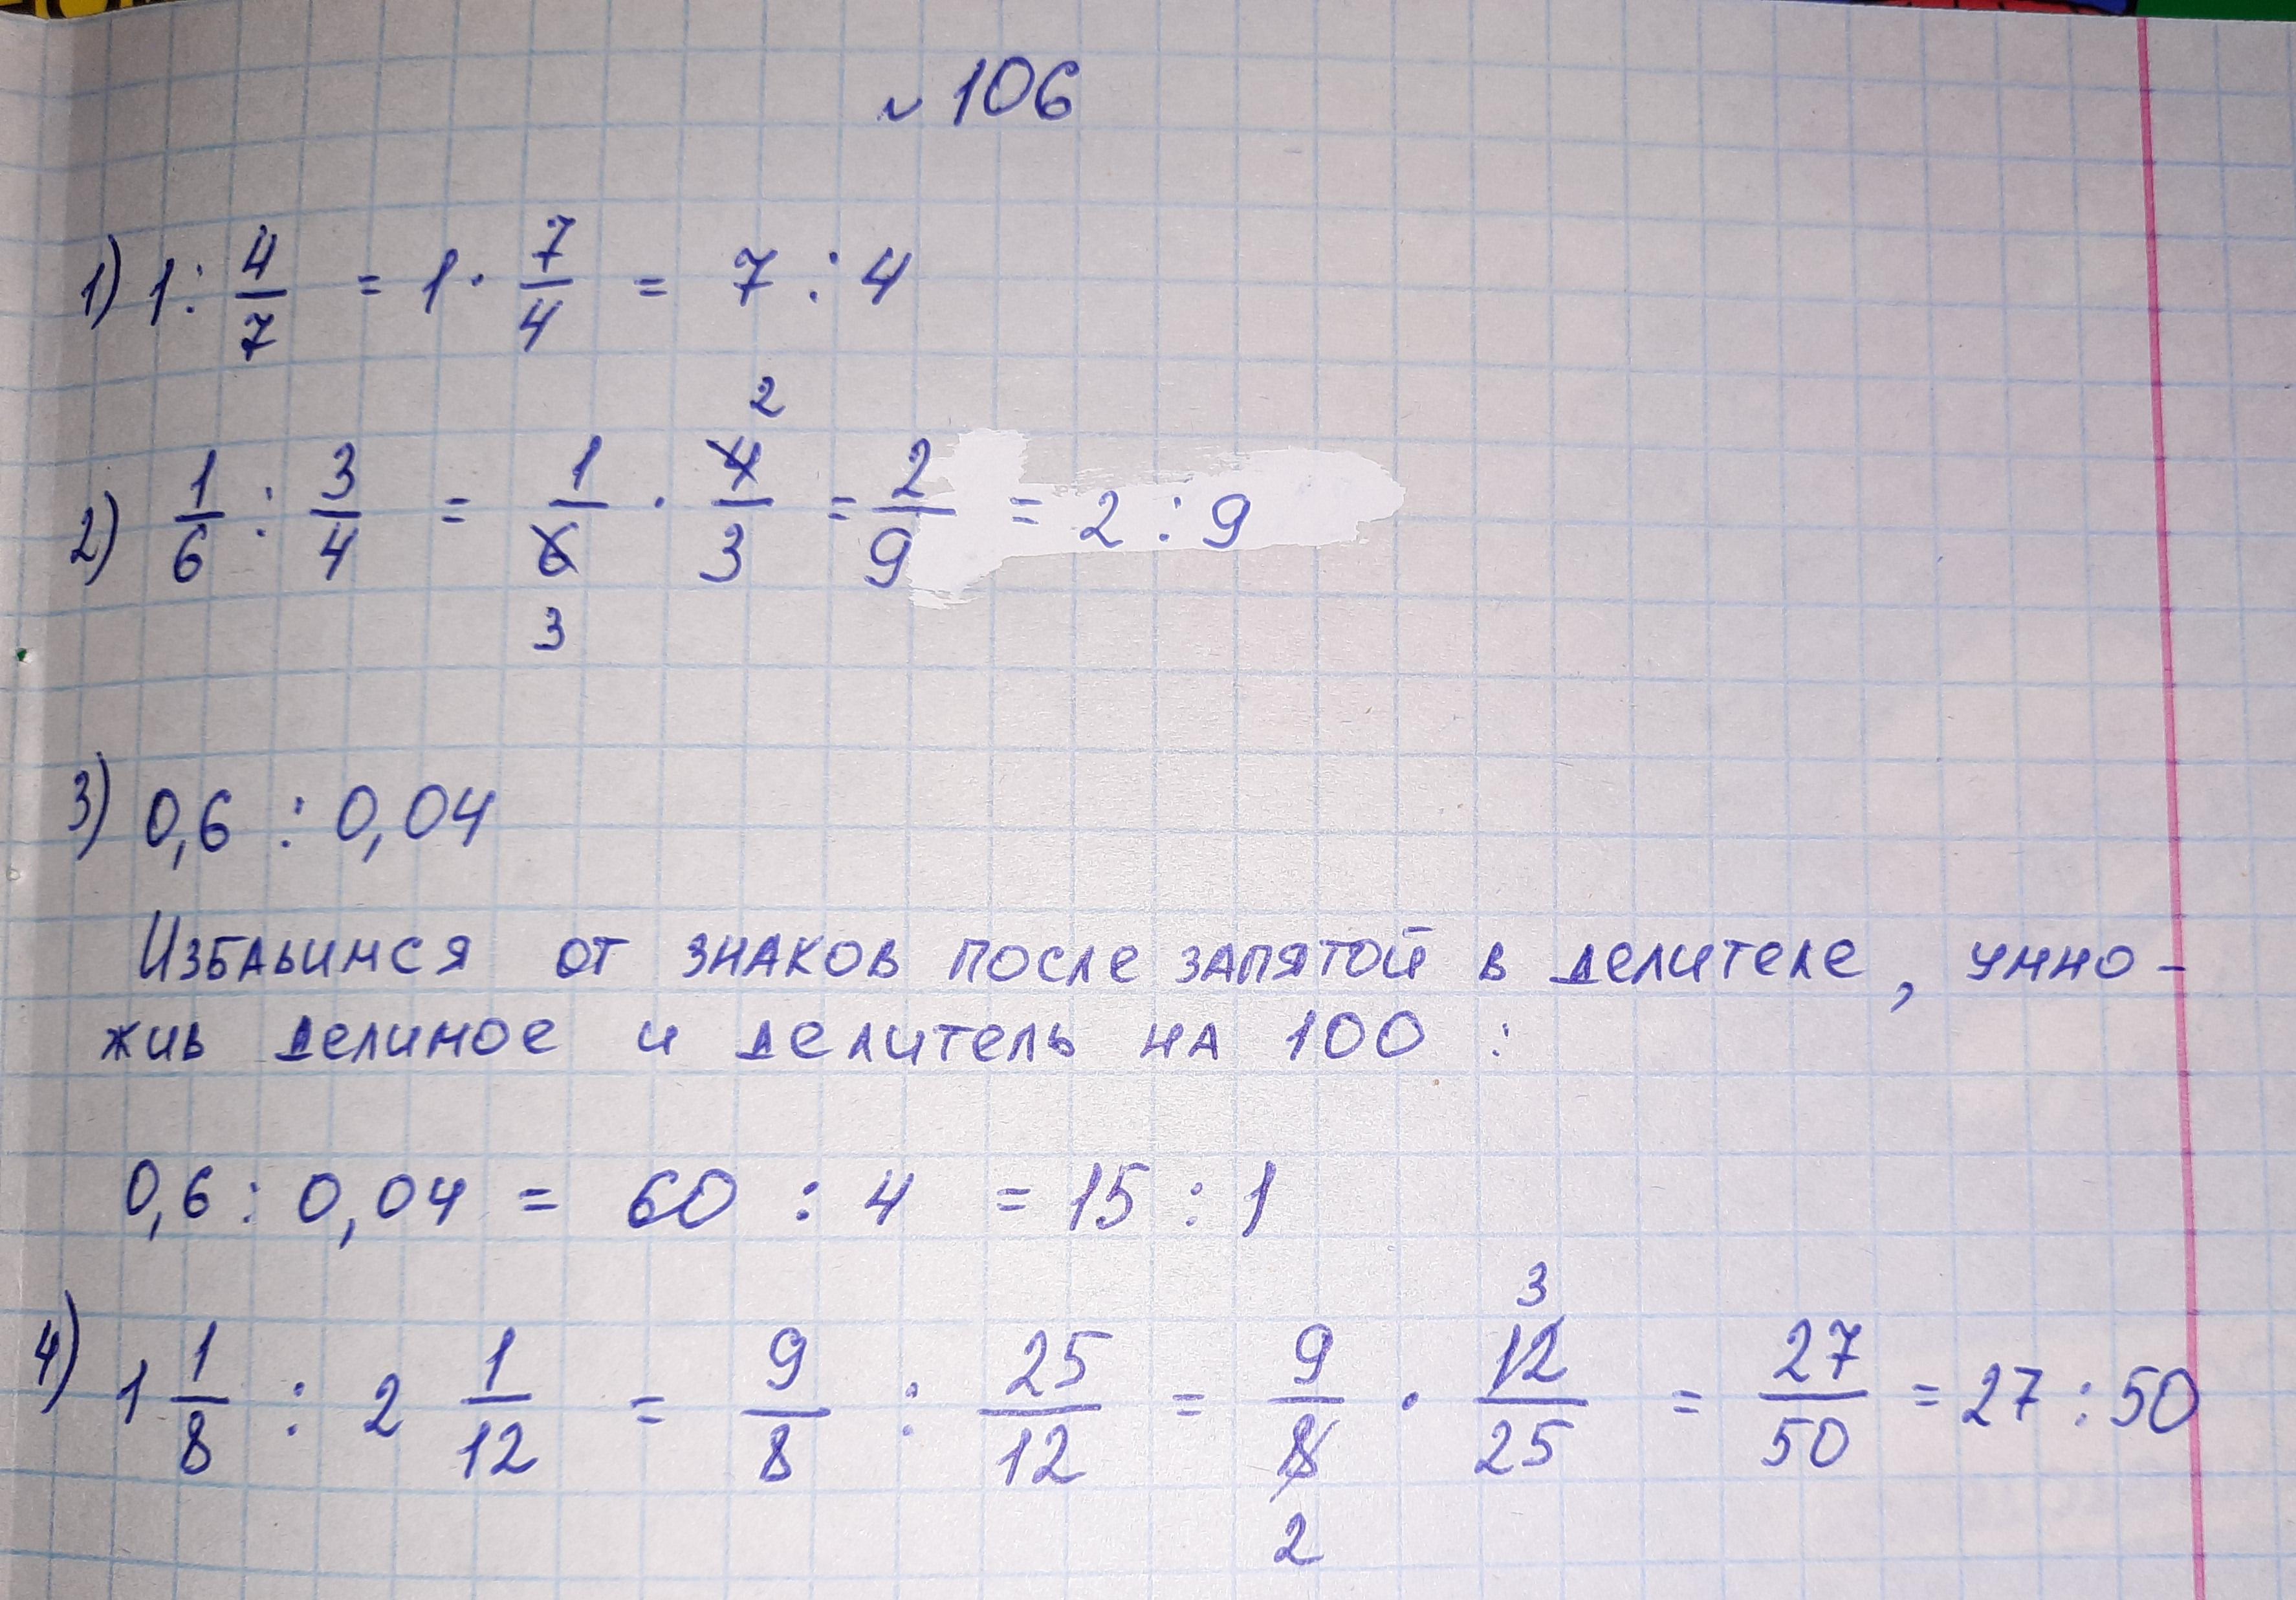 № 106
1) 1 : 4/7 = 1 · 7/4 = 7 : 4
2
2) 1/6 : 3/4 = 1/6 · 4/3 = 2/9 = 2 : 9
3
3) 0,6 : 0,04
Избавимся от знаков после запятой в делителе, умно-
жив делимое и делитель на 100 :
0,6 : 0,04 = 60 : 4 = 15 : 1
3
4) 1 1/8 : 2 1/12 = 9/8 : 25/12 = 9/8 · 12/25 = 27/50 = 27 : 50
2